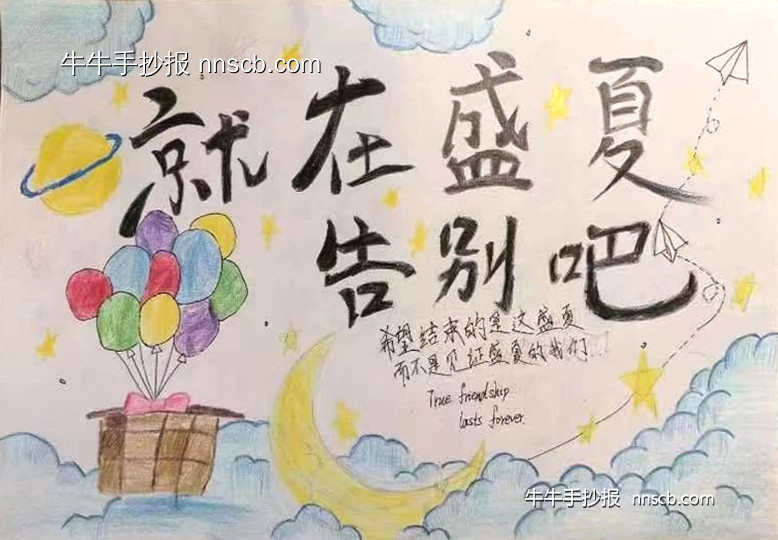 牛牛手抄报 nnscb.com
就在盛夏
告别吧
希望结束的是这盛夏
而不是见证盛夏的我们...
True friendship
lasts forever.
牛牛手抄报 nnscb.com